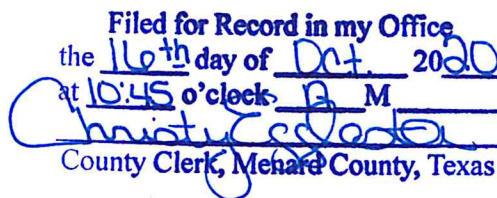 Filed for Record in my Office
the 16th day of Oct. 2020
at 10:45 o'clock A M
Christy Eggleston
County Clerk, Menard County, Texas